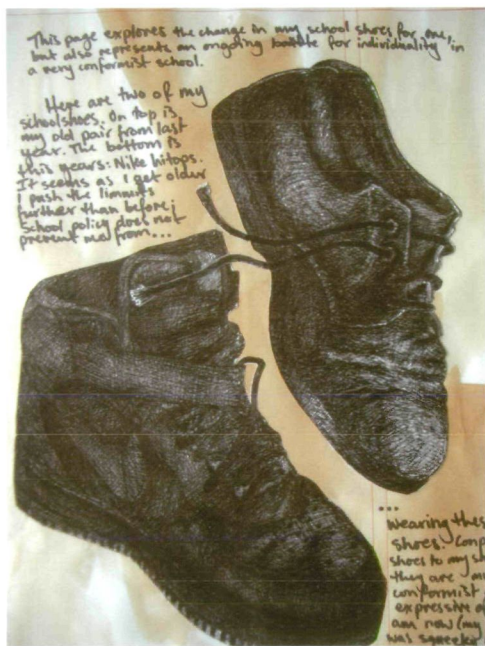 This page explores the change in my school shoes for one,
but also represents an ongoing battle for individuality in
a very conformist school.
Here are two of my
schoolshoes. On top is
my old pair from last
year. The bottom is
this years: Nike hitops.
It seems as I get older
I push the limmits
further than before;
School policy does not
prevent me from...
...
wearing these
shoes.
shoes to my
they are
conformist
expressive
am now (my
was squeeker